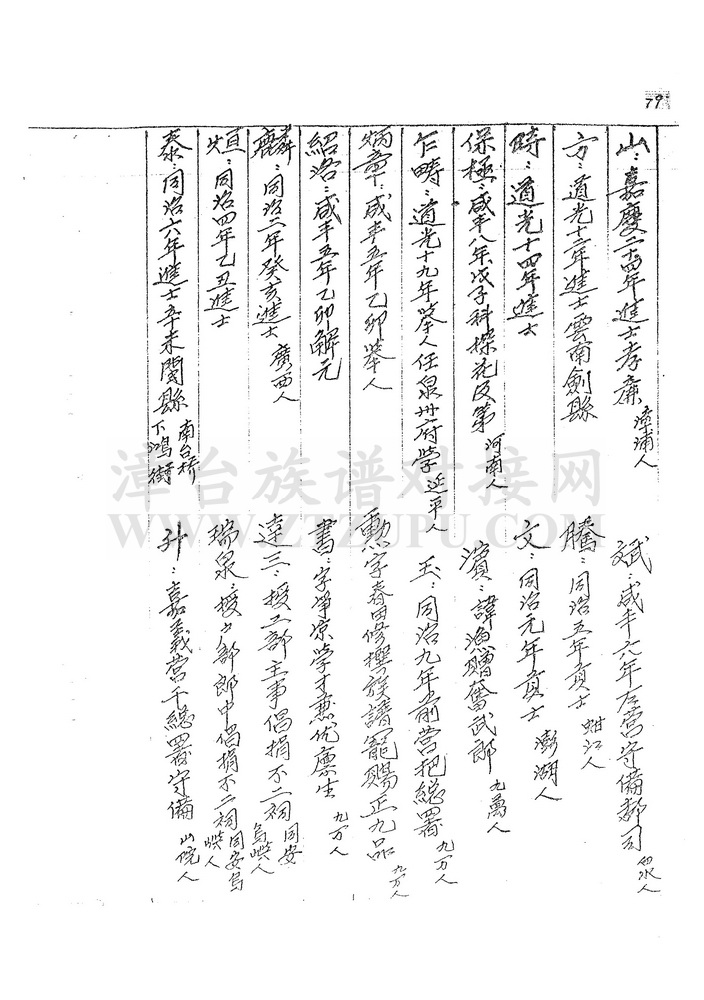 79
山：嘉慶二十四年進士孝廉 漳浦人
方：道光十二年進士雲南劍縣
時：道光十四年進士
保極：咸丰八年戊子科探花及第 河南人
乍疇：道光十九年舉人任泉州府学 延平人
炳章：咸丰五年乙卯举人
紹洛：咸丰五年乙卯解元
麟：同治二年癸亥進士 廣西人
烜：同治四年乙丑進士
泰：同治六年進士辛未閩縣 南台桥下鴻街
斌：咸丰六年左营守備都司
騰：同治五年貢士 蚶江人
文：同治元年貢士 澎湖人
濱：諱漁贈奮武郎 九萬人
玉：同治九年前营把總署 九万人
勲字春田修撰族譜寵賜正九品 九万人
書：字淨凉学才兼优廪生 九万人
達三：授工部主事倡捐不二祠 同安烏嶼人
瑞泉：授户部郎中倡捐不二祠 同安烏嶼人
升：嘉義营千總署守備
漳台族谱对接网
WWW.ZTZUPU.COM